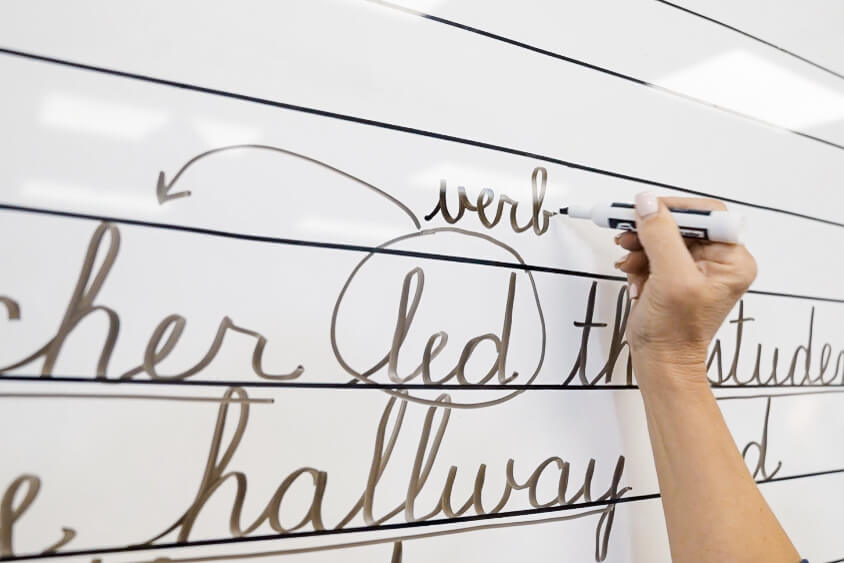 verb
cher led th studen
e hallway d